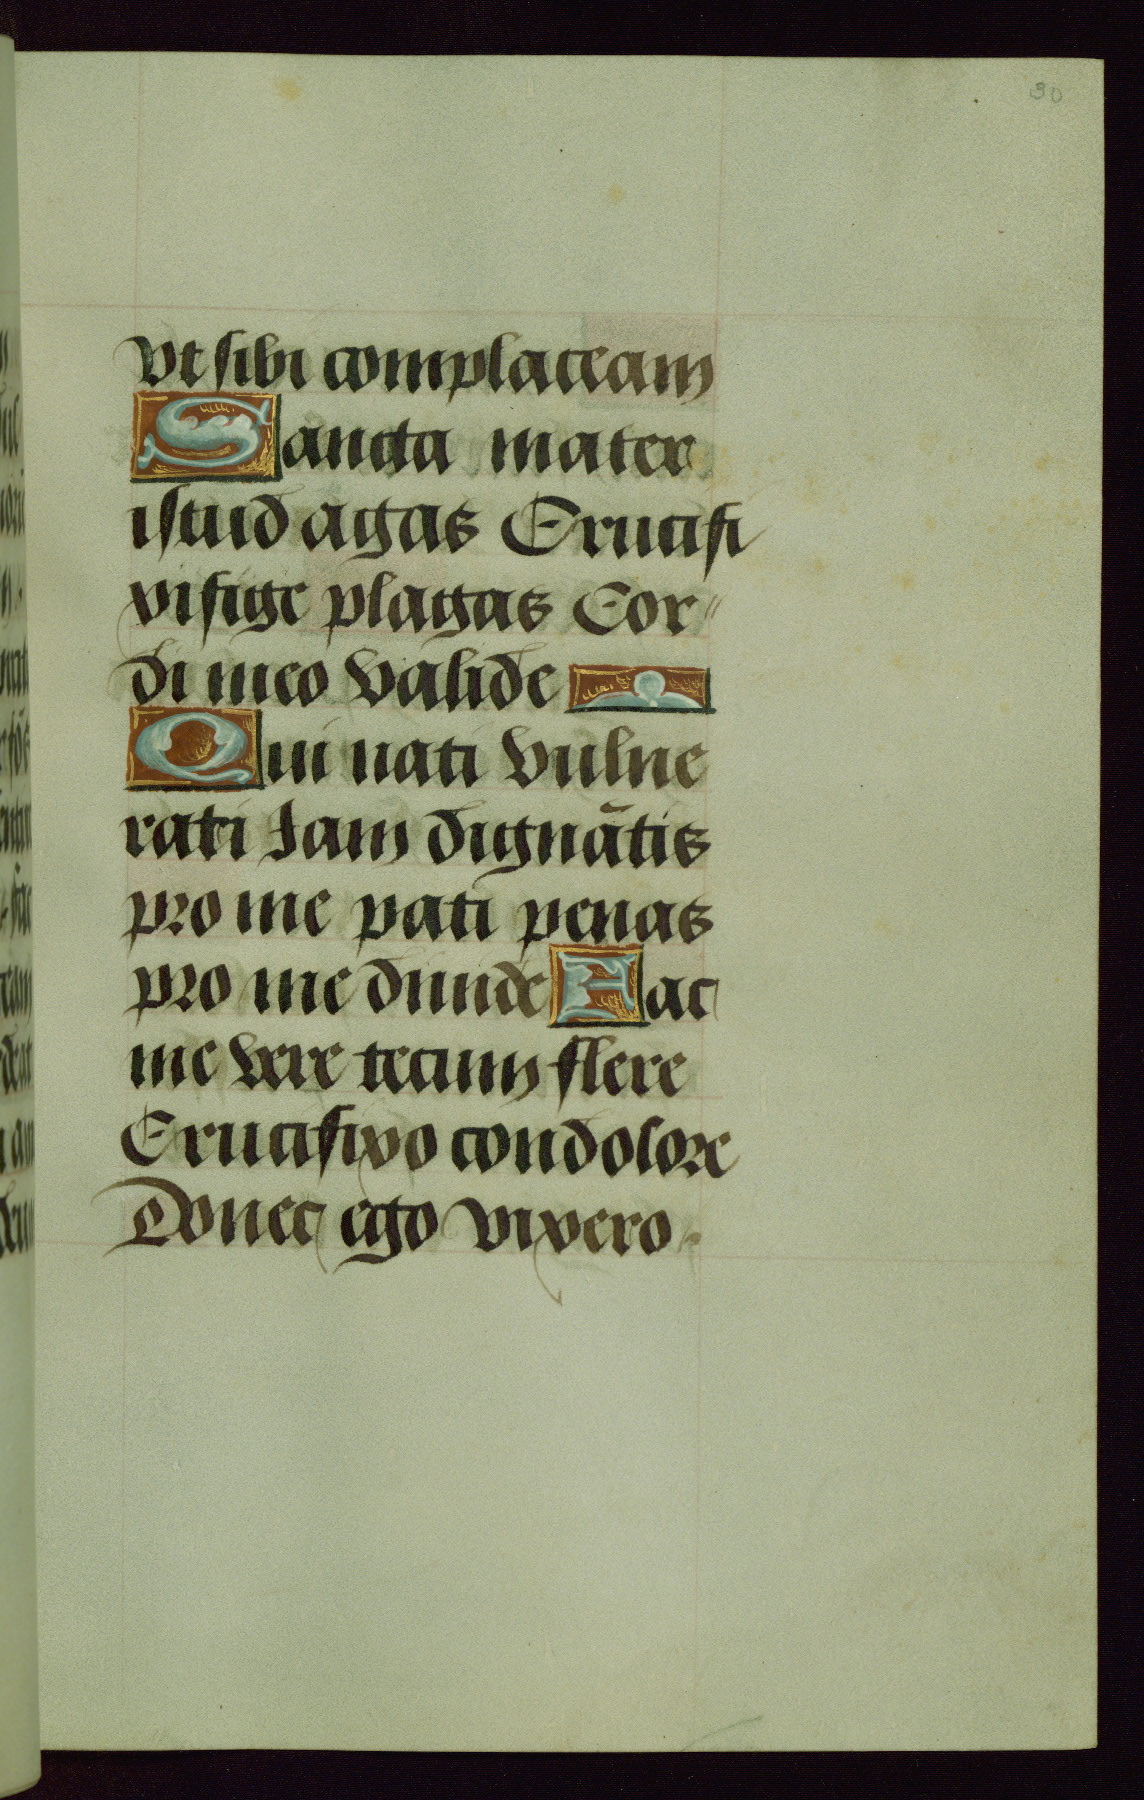 30
Ut sibi complaceam
Sancta mater
istud agas Crucifi
vi fige plagas Cor"
di meo valide
Qui nati vulne
rati Jam dignãtis
pro me pati penas
pro me diuide Fac
me vere tecum flere
Crucifixo condolore
Donec ego vixero.